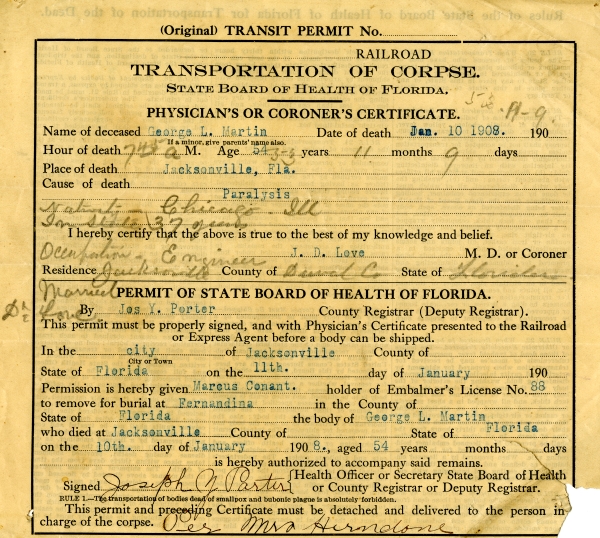 (Original) TRANSIT PERMIT No.
RAILROAD
TRANSPORTATION OF CORPSE.
STATE BOARD OF HEALTH OF FLORIDA.
A-9.
PHYSICIAN'S OR CORONER'S CERTIFICATE.
Name of deceased George L. Martin Date of death Jan. 10 1908. 190
If a minor, give parents' name also.
Hour of death 745 a M. Age 54 53 years 11 months 9 days
Place of death Jacksonville, Fla.
Cause of death
Paralysis
Nativity - Chicago Ill
In State 37 years
I hereby certify that the above is true to the best of my knowledge and belief.
Occupation - Engineer J. D. Love M. D. or Coroner
Residence Jacksonville County of Duval Co State of Florida
Married
PERMIT OF STATE BOARD OF HEALTH OF FLORIDA.
Dr Love By Jos Y. Porter County Registrar (Deputy Registrar).
This permit must be properly signed, and with Physician's Certificate presented to the Railroad
or Express Agent before a body can be shipped.
In the city of Jacksonville County of
City or Town
State of Florida on the 11th. day of January 190
Permission is hereby given Marcus Conant. holder of Embalmer's License No. 88
to remove for burial at Fernandina in the County of
State of Florida the body of George L. Martin
who died at Jacksonville County of State of Florida
on the 10th. day of January 190 8., aged 54 years months days
is hereby authorized to accompany said remains.
Signed Joseph Y. Porter {Health Officer or Secretary State Board of Health
or County Registrar or Deputy Registrar.
RULE 1.—The transportation of bodies dead of smallpox and bubonic plague is absolutely forbidden.
This permit and preceding Certificate must be detached and delivered to the person in
charge of the corpse. Per Mrs Herndone